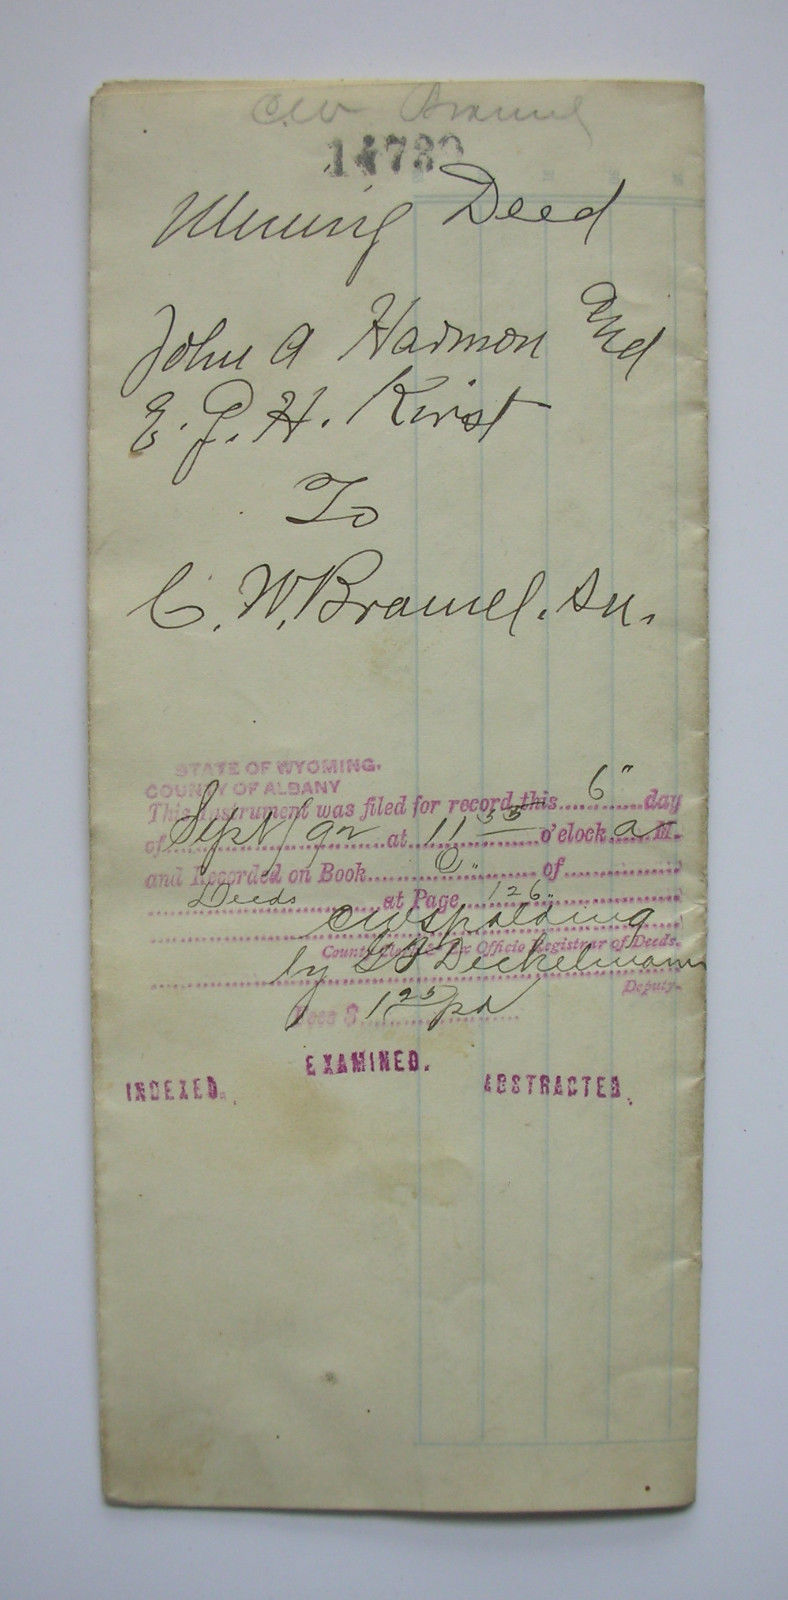 CW Bramel
14739
Mining Deed
John A Harmon And
E. J. H. Kirst
To
C. W. Bramel. Sr.
STATE OF WYOMING.
COUNTY OF ALBANY
This Instrument was filed for record this 6" day
of Sept 92 at 11 55 o'clock a M.
and Recorded on Book of
Deeds at Page 126
CW Spalding
County Clerk & Ex Officio Registrar of Deeds.
by Deckelmann
Deputy.
Fees $ 1 25 pd
EXAMINED.
INDEXED. ABSTRACTED.